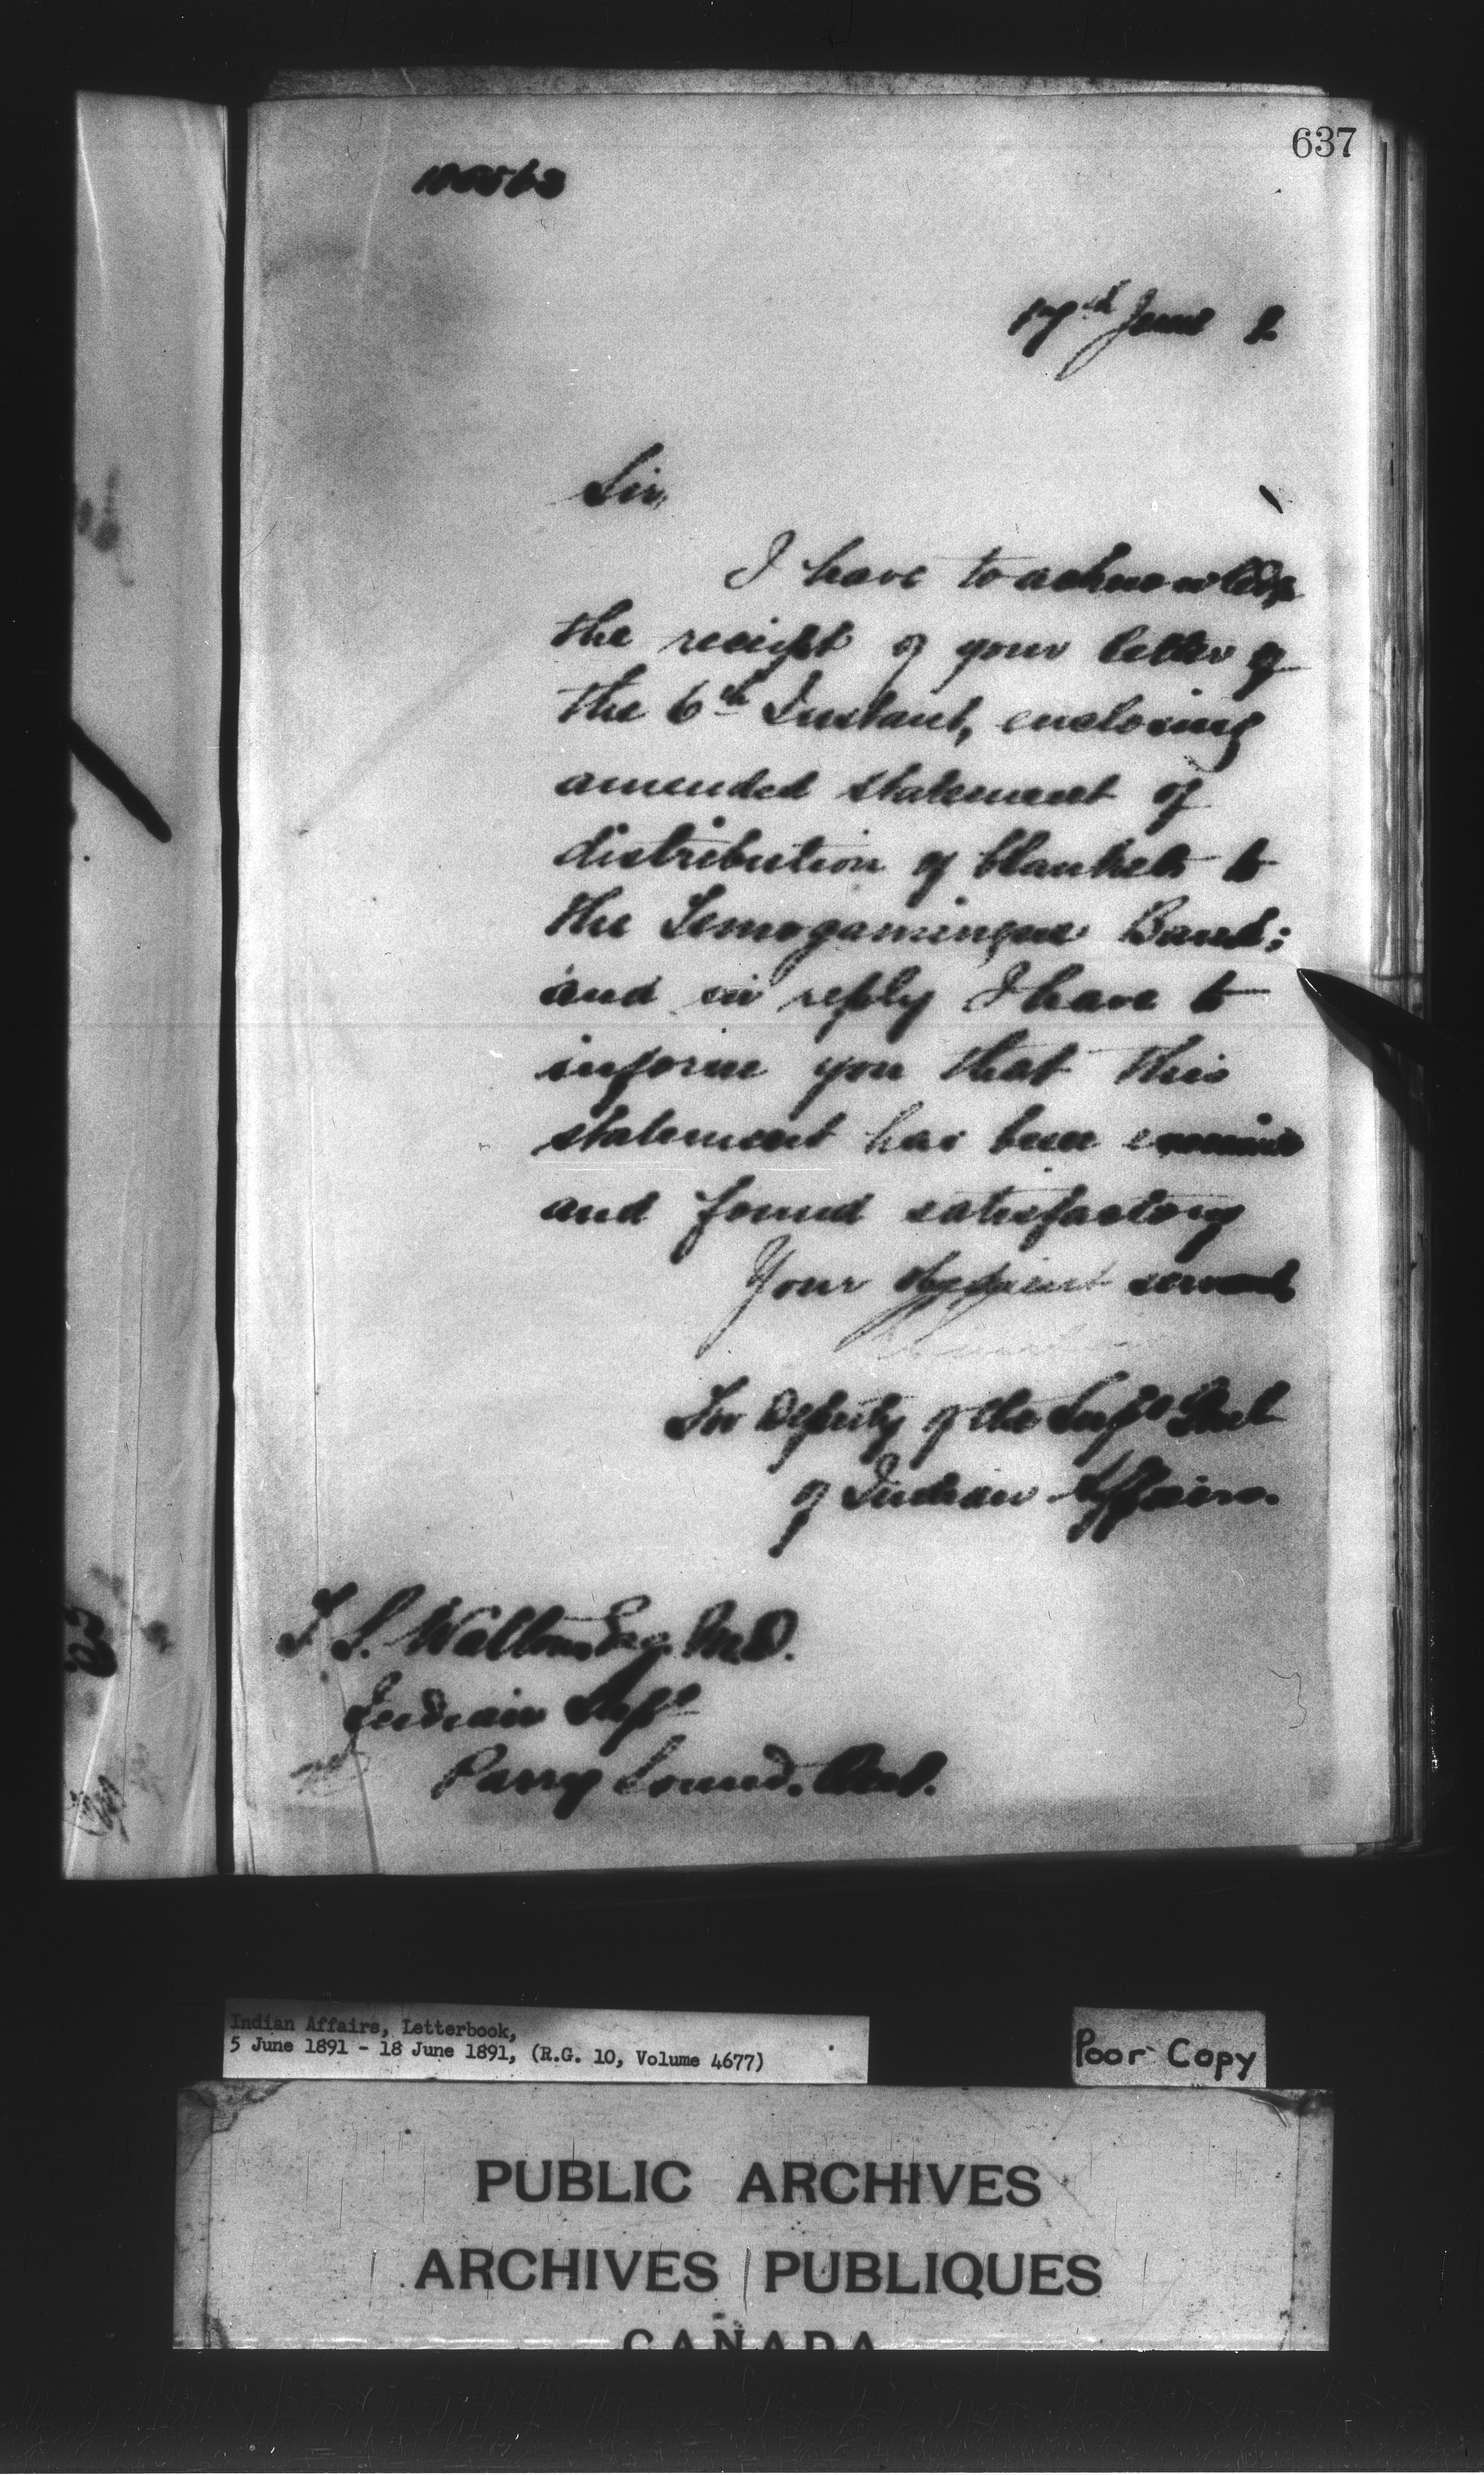 637
17th June
Sir,
I have to acknowledge
the receipt of your letter of
the 6th Instant, enclosing
amended statement of
distribution of blankets to
the Temogamingue Band;
and in reply I have to
inform you that this
statement has been
and found satisfactory
Your obedient servant
For Deputy of the Supt Genl
of Indian Affairs.
T. S. Walton Esq. M.D.
Indian Supt
Parry Sound. Ont.
Indian Affairs, Letterbook,
5 June 1891 - 18 June 1891, (R.G. 10, Volume 4677)
Poor Copy
PUBLIC ARCHIVES
ARCHIVES PUBLIQUES
CANADA